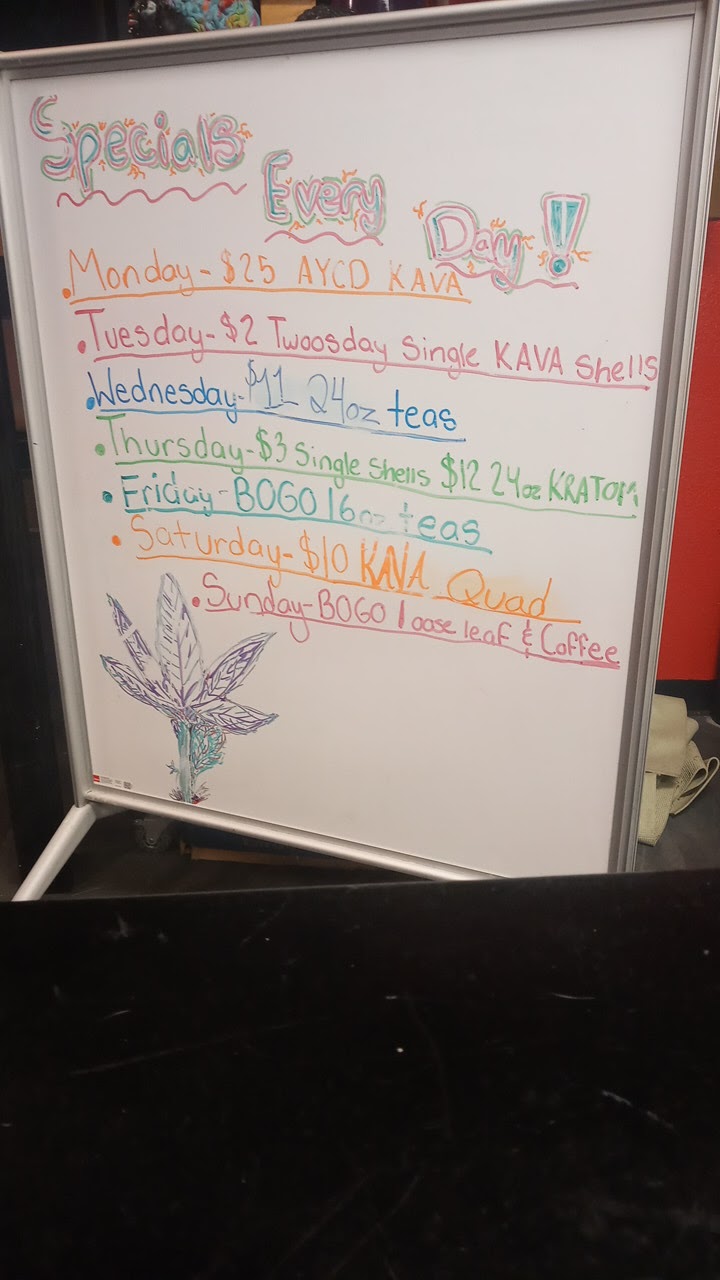 Specials
Every
Day!
• Monday - $25 AYCD KAVA
• Tuesday - $2 Twoosday Single KAVA Shells
• Wednesday - $11 24oz teas
• Thursday - $3 Single Shells $12 24oz KRATOM
• Friday - BOGO 16oz teas
• Saturday - $10 KAVA Quad
• Sunday - BOGO loose leaf & Coffee